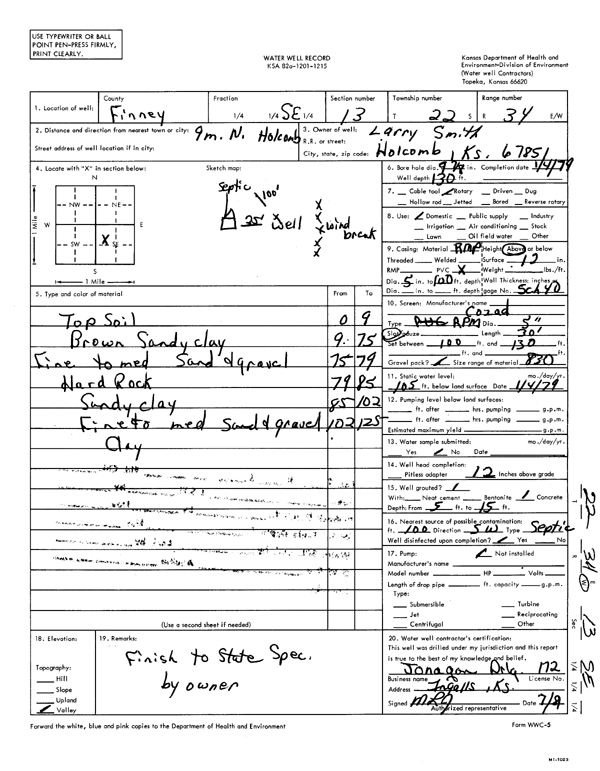 USE TYPEWRITER OR BALL
POINT PEN-PRESS FIRMLY,
PRINT CLEARLY.
WATER WELL RECORD
KSA 82a-1201-1215
Kansas Department of Health and
Environment-Division of Environment
(Water well Contractors)
Topeka, Kansas 66620
1. Location of well: County Finney Fraction 1/4 1/4 SE 1/4 Section number 13 Township number T 22 S Range number R 34 E/W
2. Distance and direction from nearest town or city: 9m. N. Holcomb
Street address of well location if in city:
3. Owner of well: Larry Smith
R.R. or street:
City, state, zip code: Holcomb, Ks. 67851
4. Locate with "X" in section below:
N
NW NE
W E
SW X SE
S
1 Mile
1 Mile
Sketch map:
Septic
100'
25' Well
Wind break
6. Bore hole dia. 9 7/8 in. Completion date 1/4/79
Well depth 130 ft.
7. Cable tool ✓ Rotary Driven Dug
Hollow rod Jetted Bored Reverse rotary
8. Use: ✓ Domestic Public supply Industry
Irrigation Air conditioning Stock
Lawn Oil field water Other
9. Casing: Material Height: Above or below
Threaded Welded Surface 12 in.
RMP PVC X Weight lbs./ft.
Dia. 5 in. to 100 ft. depth Wall Thickness: inches or
Dia. in. to ft. depth gage No. Sch 40
5. Type and color of material From To
Top Soil 0 9
Brown Sandy clay 9 75
Fine to med Sand & gravel 75 79
Hard Rock 79 85
Sandy clay 85 102
Fine to med Sand & gravel 102 125
Clay
10. Screen: Manufacturer's name
Cozad
Type RPM Dia. 5"
Slot/gauze Length 30'
Set between 100 ft. and 130 ft.
ft. and ft.
Gravel pack? ✓ Size range of material 830
11. Static water level: mo./day/yr.
105 ft. below land surface Date 1/4/79
12. Pumping level below land surfaces:
ft. after hrs. pumping g.p.m.
ft. after hrs. pumping g.p.m.
Estimated maximum yield g.p.m.
13. Water sample submitted: mo./day/yr.
Yes ✓ No Date
14. Well head completion:
Pitless adapter 12 Inches above grade
15. Well grouted? ✓
With: Neat cement Bentonite ✓ Concrete
Depth: From 5 ft. to 15 ft.
16. Nearest source of possible contamination:
ft. 100 Direction SW Type Septic
Well disinfected upon completion? ✓ Yes No
17. Pump: ✓ Not installed
Manufacturer's name
Model number HP Volts
Length of drop pipe ft. capacity g.p.m.
Type:
Submersible Turbine
Jet Reciprocating
Centrifugal Other
(Use a second sheet if needed)
18. Elevation:
Topography:
Hill
Slope
Upland
✓ Valley
19. Remarks:
Finish to State Spec.
by owner
20. Water well contractor's certification:
This well was drilled under my jurisdiction and this report
is true to the best of my knowledge and belief.
Drlg. 172
Business name License No.
Address Ingalls, Ks.
Signed Date
Authorized representative
T 22 R 34 W Sec 13 1/4 1/4 SE 1/4
Forward the white, blue and pink copies to the Department of Health and Environment
Form WWC-5